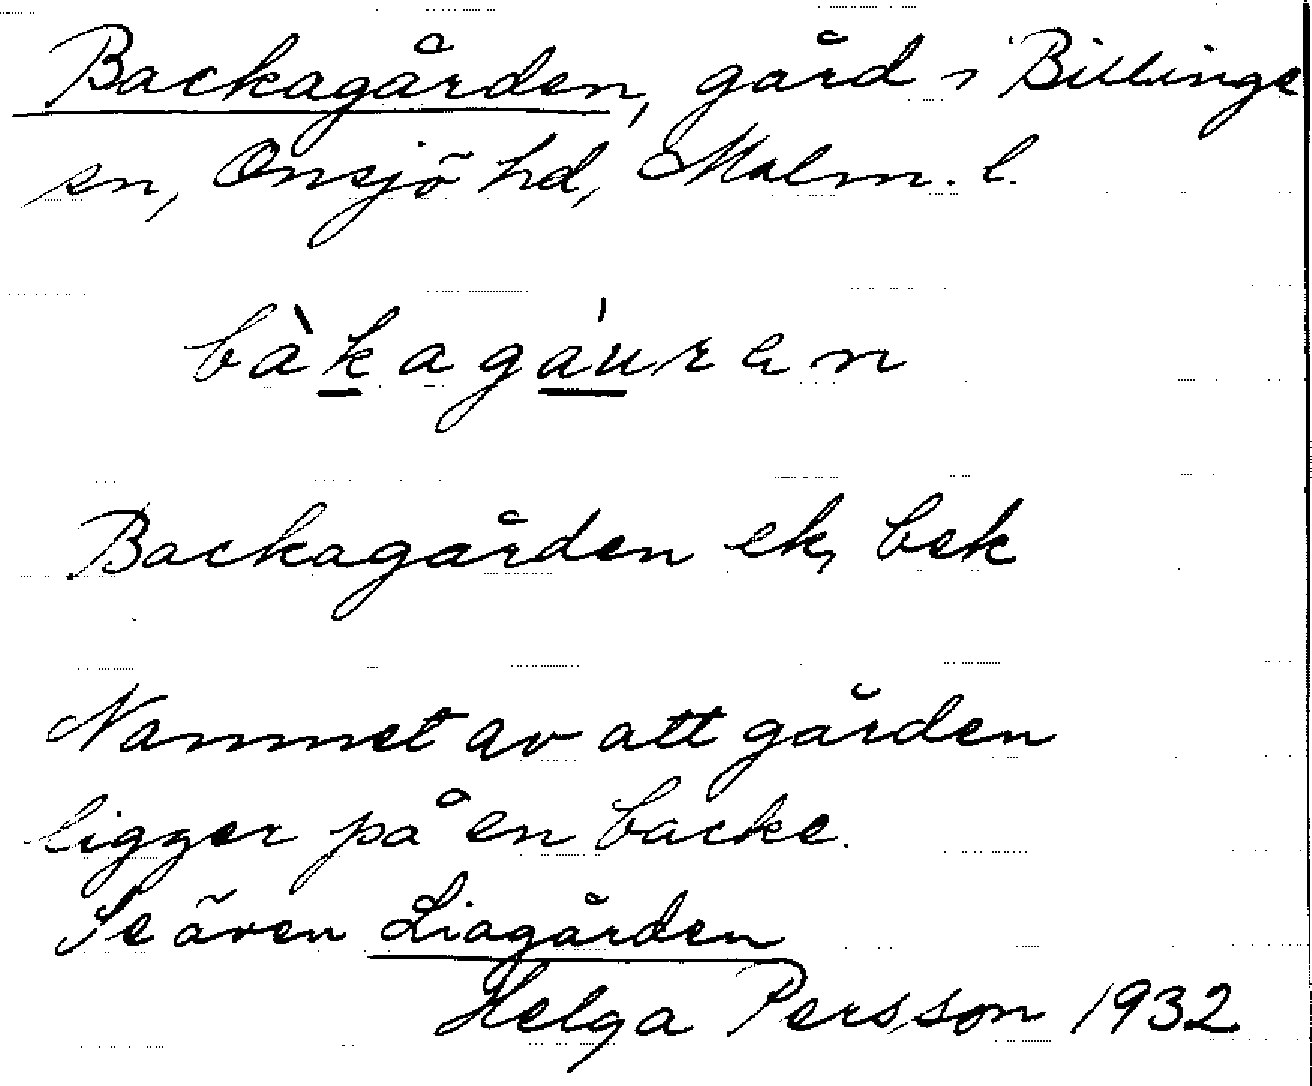 Backagården, gård i Billinge
sn, Onsjö hd, Malm. l.
bàkagáuran
Backagården ek, bek
Namnet av att gården
ligger på en backe.
Se även Liagården
Helga Persson 1932